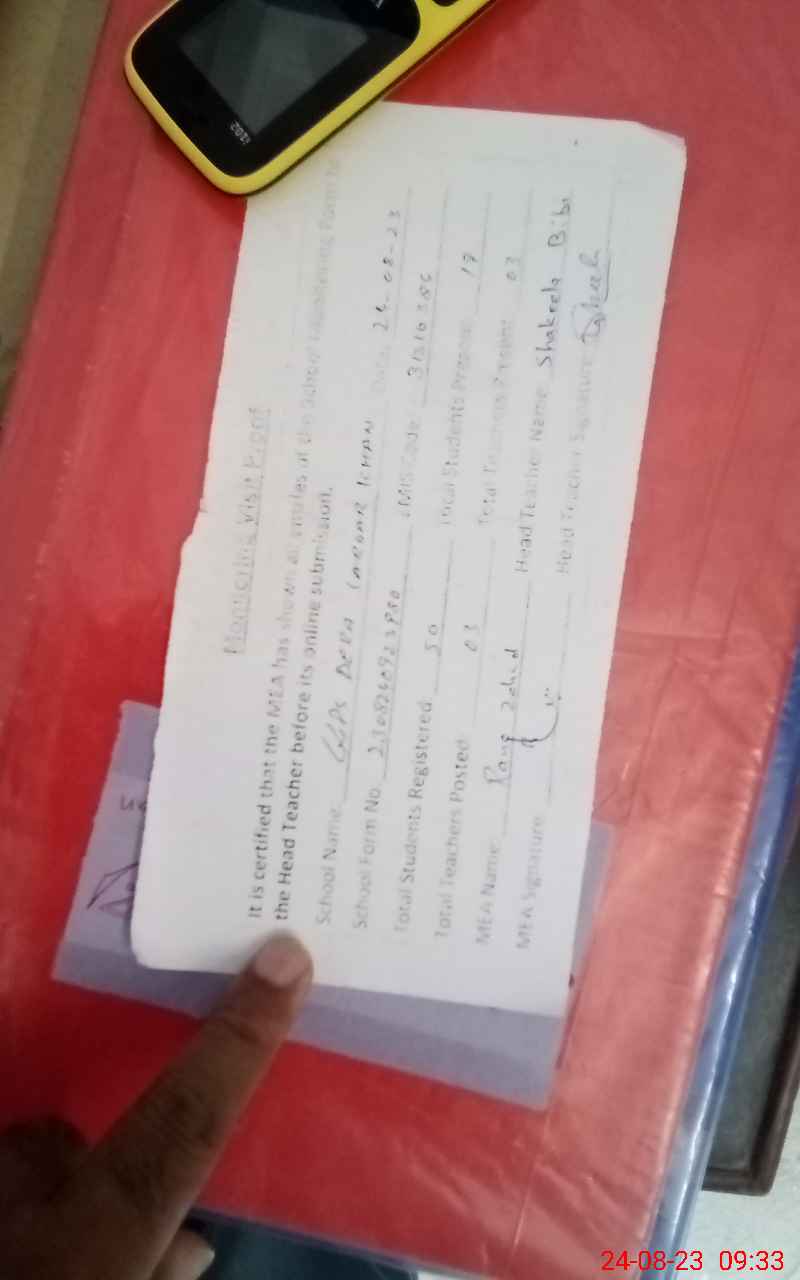 Monitoring Visit Proof
It is certified that the MEA has shown all entries of the School Monitoring Form to
the Head Teacher before its online submission.
School Name: GGPS DERA Date: 24-08-23
School Form No. EMIS Code:
Total Students Registered 50 Total Students Present 19
Total Teachers Posted 03 Total Teachers Present 03
MEA Name: Rana Zahid Head Teacher Name: Shakeela Bibi
MEA Signature: Head Teacher Signature:
24-08-23 09:33